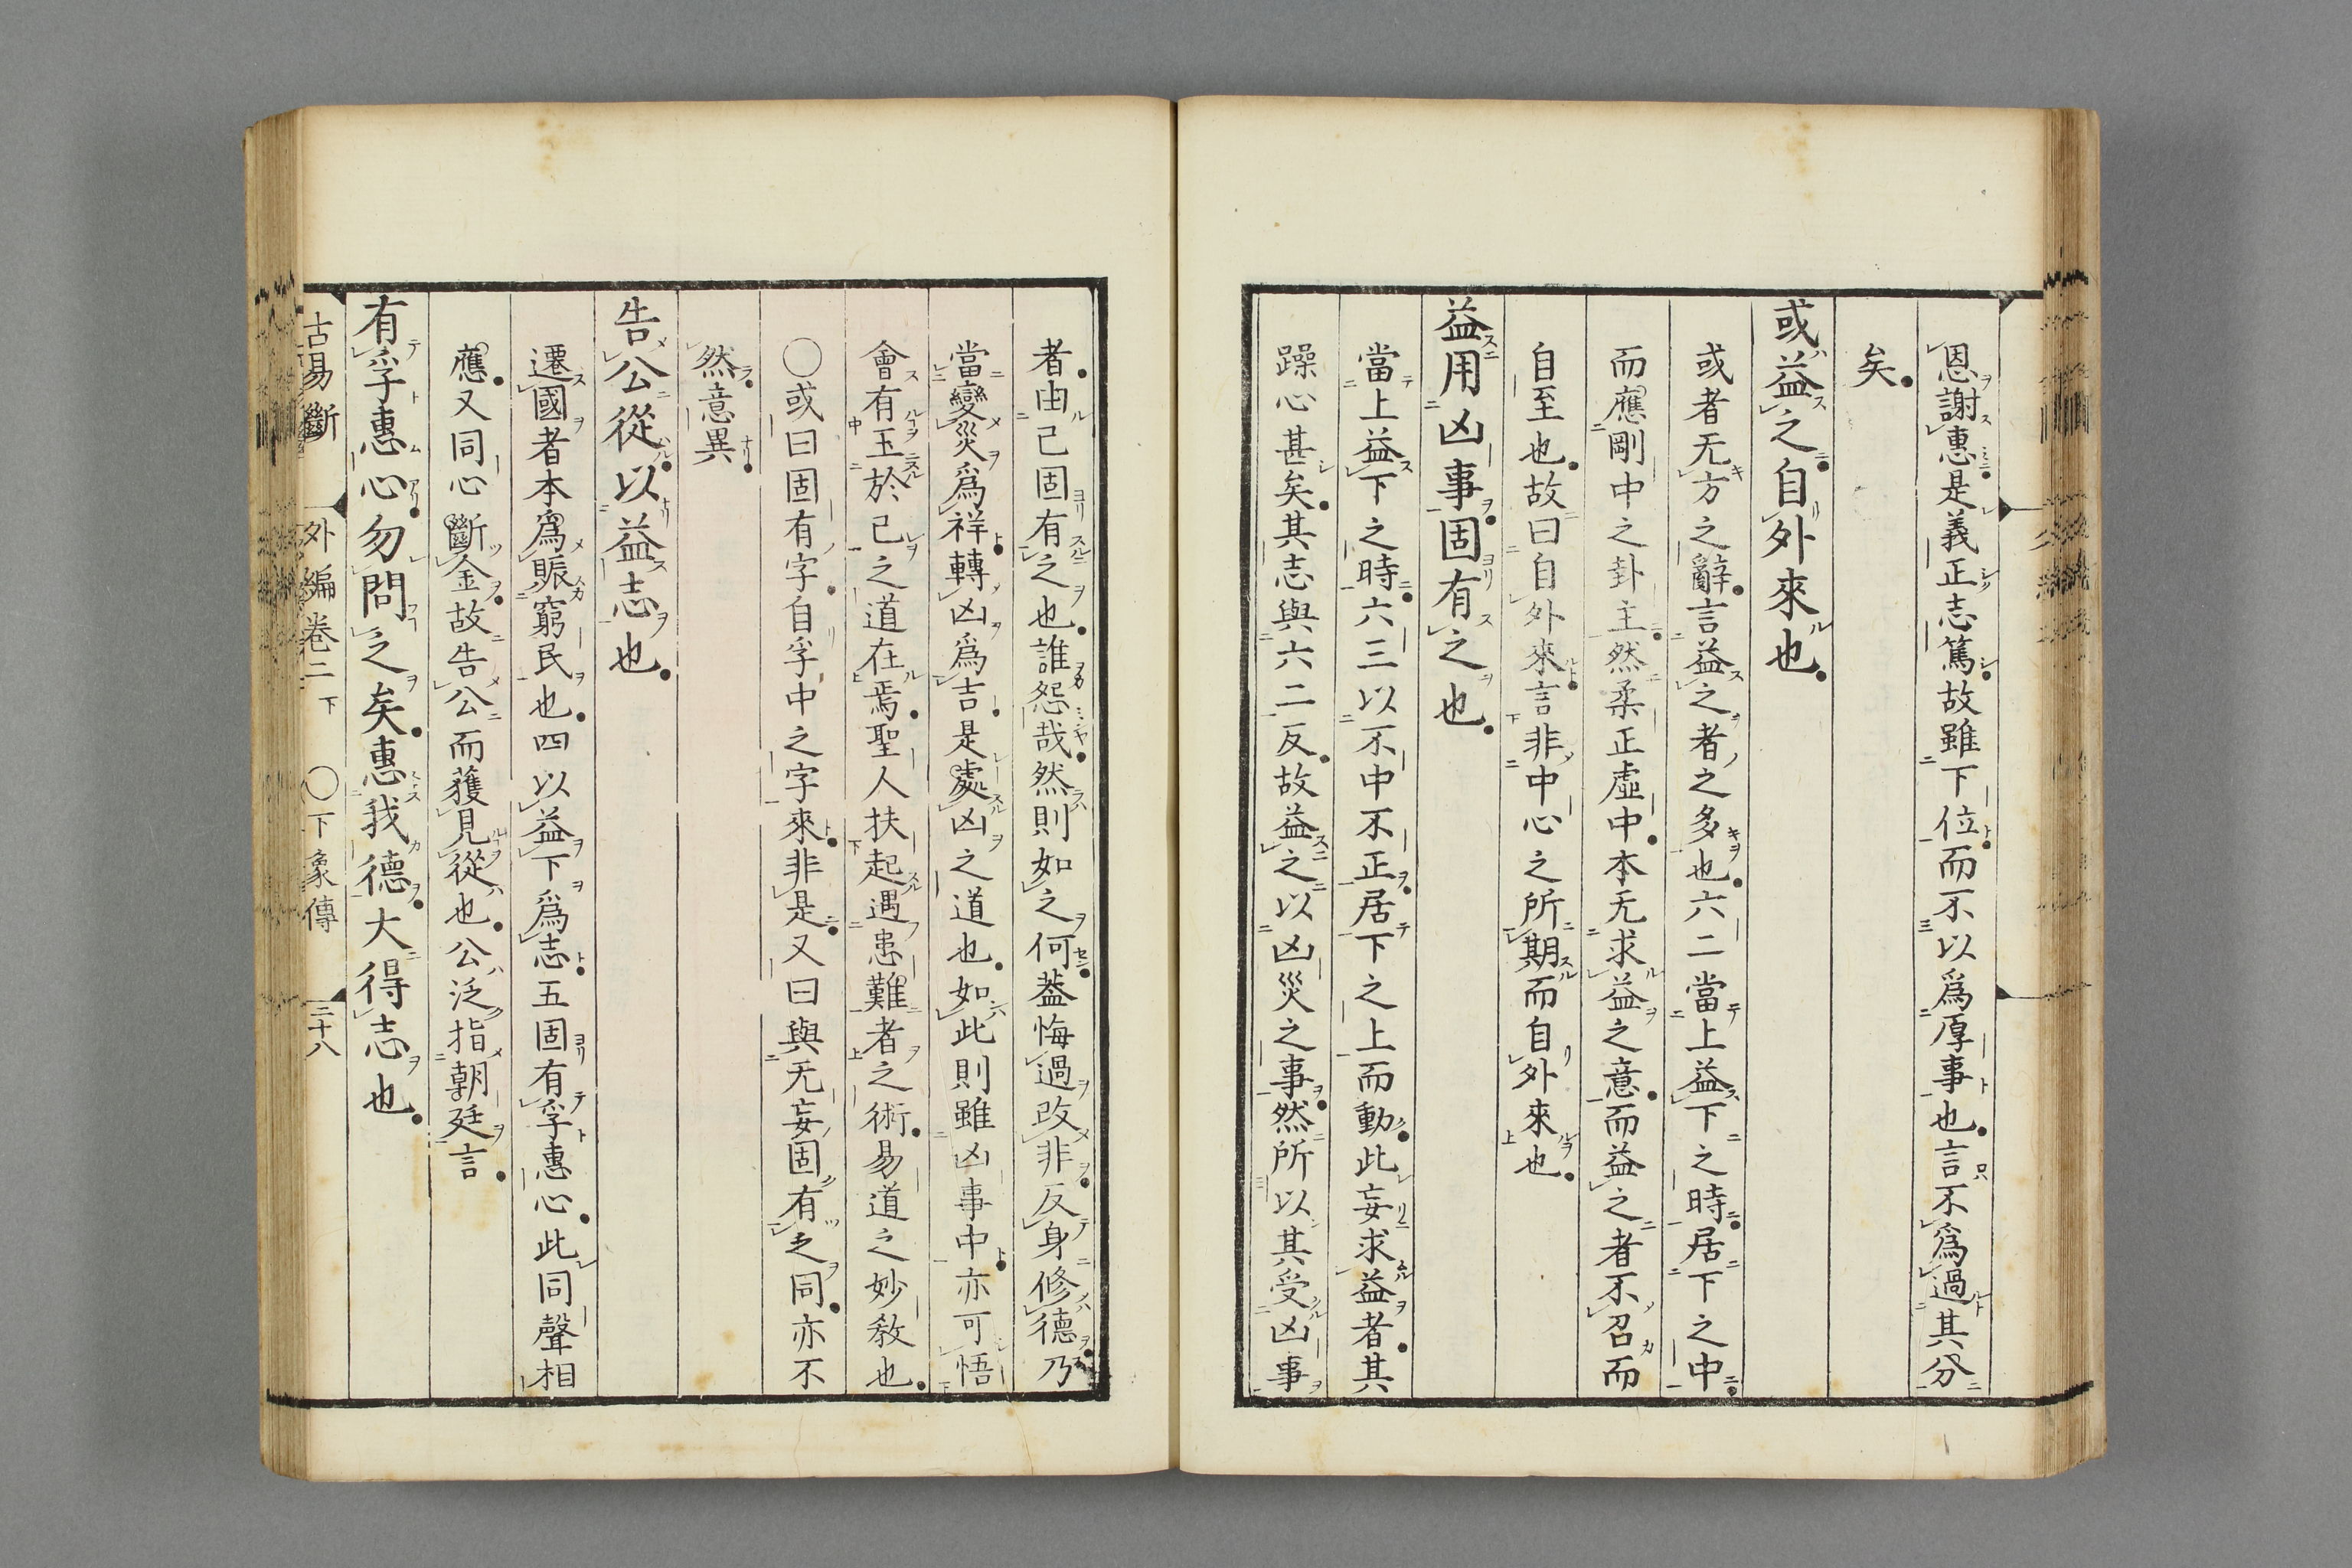 恩謝惠是義正志篤故雖下位而不以爲厚事也言不爲過其分
矣
或益之自外來也
或者无方之辭言益之者之多也六二當上益下之時居下之中
而應剛中之卦主然柔正虛中本无求益之意而益之者不召而
自至也故曰自外來言非中心之所期而自外來也
益用凶事固有之也
當上益下之時六三以不中不正居下之上而動此妄求益者其
躁心甚矣其志與六二反故益之以凶災之事然所以其受凶事
者由己固有之也誰怨哉然則如之何蓋悔過改非反身修德乃
當變災爲祥轉凶爲吉是處凶之道也如此則雖凶事中亦可悟
會有玉於己之道在焉聖人扶起遇患難者之術易道之妙教也
○或曰固有字自孚中之字來非是又曰與无妄固有之同亦不
然意異
告公從以益志也
遷國者本爲賑窮民也四以益下爲志五固有孚惠心此同聲相
應又同心斷金故告公而獲見從也公泛指朝廷言
有孚惠心勿問之矣惠我德大得志也
古易斷　外編卷二下　○下象傳　三十八